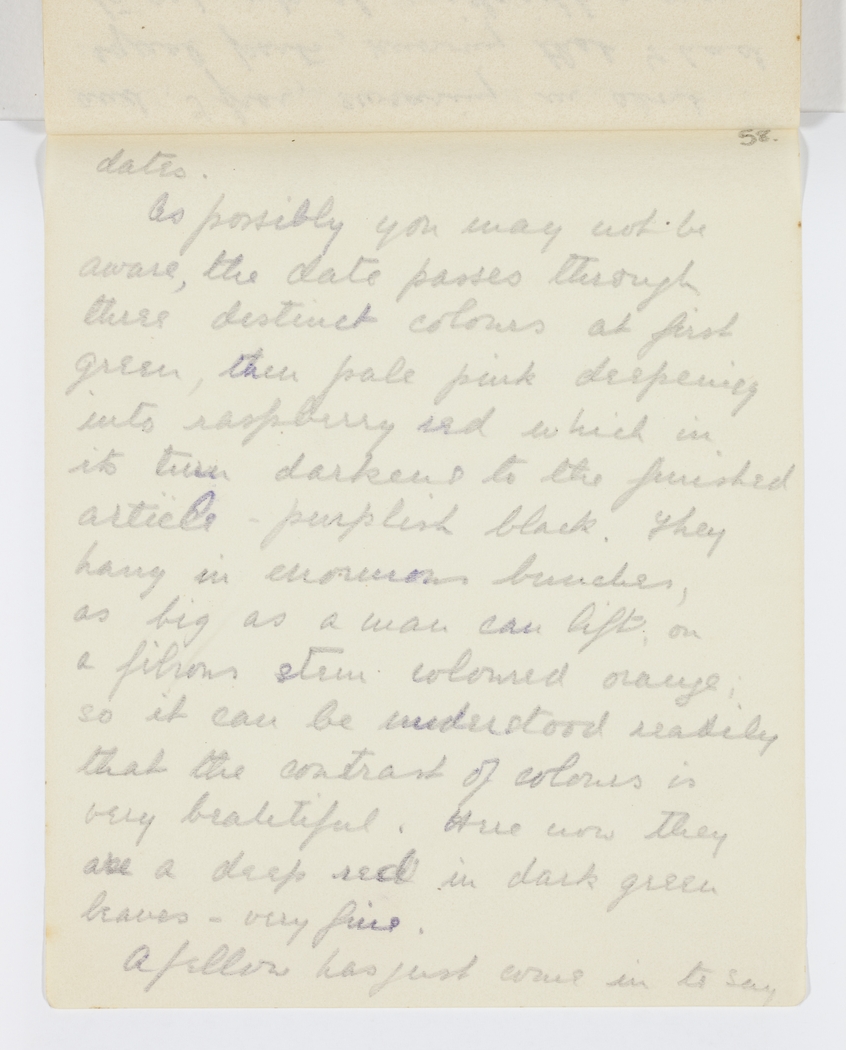 58.
dates.
As possibly you may not be
aware, the date passes through
three distinct colours at first
green, then pale pink deepening
into raspberry red which in
its turn darkens to the finished
article - purplish black. They
hang in enormous bunches,
as big as a man can lift, on
a fibrous stem coloured orange;
so it can be understood readily
that the contrast of colours is
very beautiful. Here now they
are a deep red in dark green
leaves - very fine.
A fellow has just come in to say